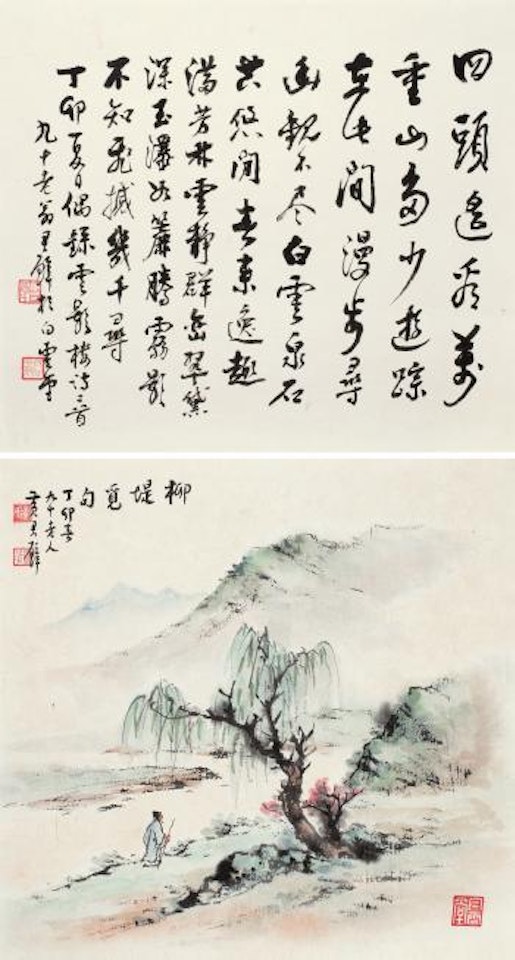 回頭遙看萬
重山多少遊踪
在此間漫步尋
幽觀不尽白雲泉石
共悠閒春來逸趣
滿芳林雲靜群巒翠黛
深玉瀑如簾騰霧影
不知飛撼幾千尋
丁卯夏日偶錄雲影樓詩二首
九十老翁君璧於白雲堂
柳堤覓句
丁卯春
九十老人
黃君璧